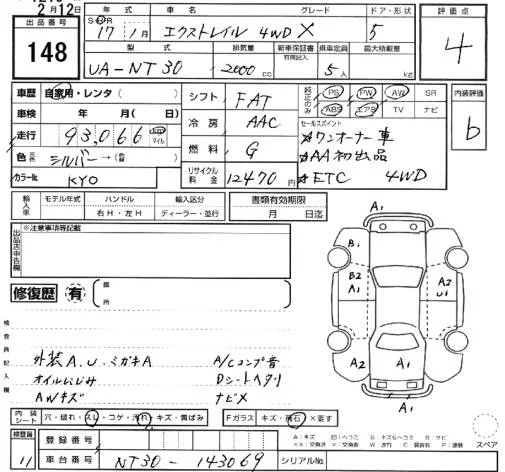 2月12日
出品番号
148
年式
車名
グレード
ドア・形状
評価点
S・H 17年 1月
エクストレイル 4WD X
5
4
型式
排気量
新車保証書
有限記入
乗車定員
最大積載量
UA-NT30
2000cc
5人
kg
車歴 自家用・レンタ( )
車検 年 月( 日)
走行 93,066 km マイル
色 元色 シルバー→(色替)
カラーNo. KYO
シフト FAT
冷房 AAC
燃料 G
リサイクル料金 12470円
純正のみ
PS PW AW SR
ABS エアB TV ナビ
内装評価
b
セールスポイント
☆ワンオーナー車
☆AA初出品
☆ETC 4WD
輸入車
モデル年式
ハンドル
輸入区分
右H・左H
ディーラー・並行
書類有効期限
月 日迄
出品店申告欄
※注意事項等記載
修復歴 有
箇所
検査員記入欄
外装A.U.ミガキA
オイルにじみ
AWキズ
A/Cコンプ音
Dシートヘタリ
ナビ×
A1
B1
B2
A1
A2
U1
A2
A1
A1
内装シート
穴・破れ・スレ・コゲ・汚れ・キズ・黄ばみ
Fガラス
キズ・飛石・×要す
A:キズ 凹:ヘコミ B:キズ&ヘコミ S:サビ
XX:交換済 X:要交換 W:波打 C:腐食有 P:塗装
スペア
検査員
11
登録番号
車台番号 NT30-143069
シリアルNo.